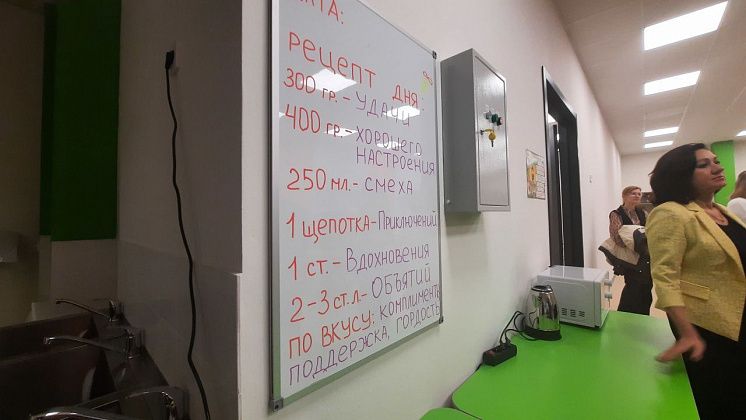 РЕЦЕПТ ДНЯ:
300 ГР. - УДАЧИ
400 ГР. - ХОРОШЕГО
НАСТРОЕНИЯ
250 МЛ. - СМЕХА
1 ЩЕПОТКА - ПРИКЛЮЧЕНИЙ
1 СТ. - ВДОХНОВЕНИЯ
2-3 СТ.Л - ОБЪЯТИЙ
ПО ВКУСУ: КОМПЛИМЕНТЫ
ПОДДЕРЖКА, ГОРДОСТЬ